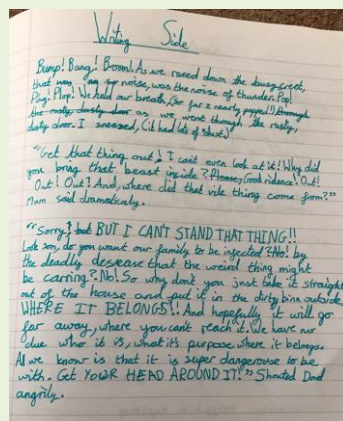 Writing Side
Bump! Bang! Boom! As we raced down the busy street,
that noise, was the noise of thunder. Pop!
Ping! Plop! We held our breath, (so far I nearly popped!) through
the rusty, dusty door as we went through the rusty,
dusty door. I sneezed, (it had lots of dust)
"Get that thing out! I cait even look at it! Why did
you bring that beast inside? Good ridence! Out!
Out! Out! And, where did that vile thing come from?"
Mum said dramaticaly.
"Sorry, but BUT I CAN'T STAND THAT THING!!
Look son, do you want our family to be infected? No! by
the deadly desease that the weird thing might
be carring? No! So why don't you just take it straight
out of the house and put it in the dirty bin outside,
WHERE IT BELONGS!! And hopefully it will go
far away, where you can't reach it. We have no
clue who it is, what it's purpose where it belongs.
Al we know is that it is super dangerouse to be
with. Get YOUR HEAD AROUND IT!" Shouted Dad
angrily.